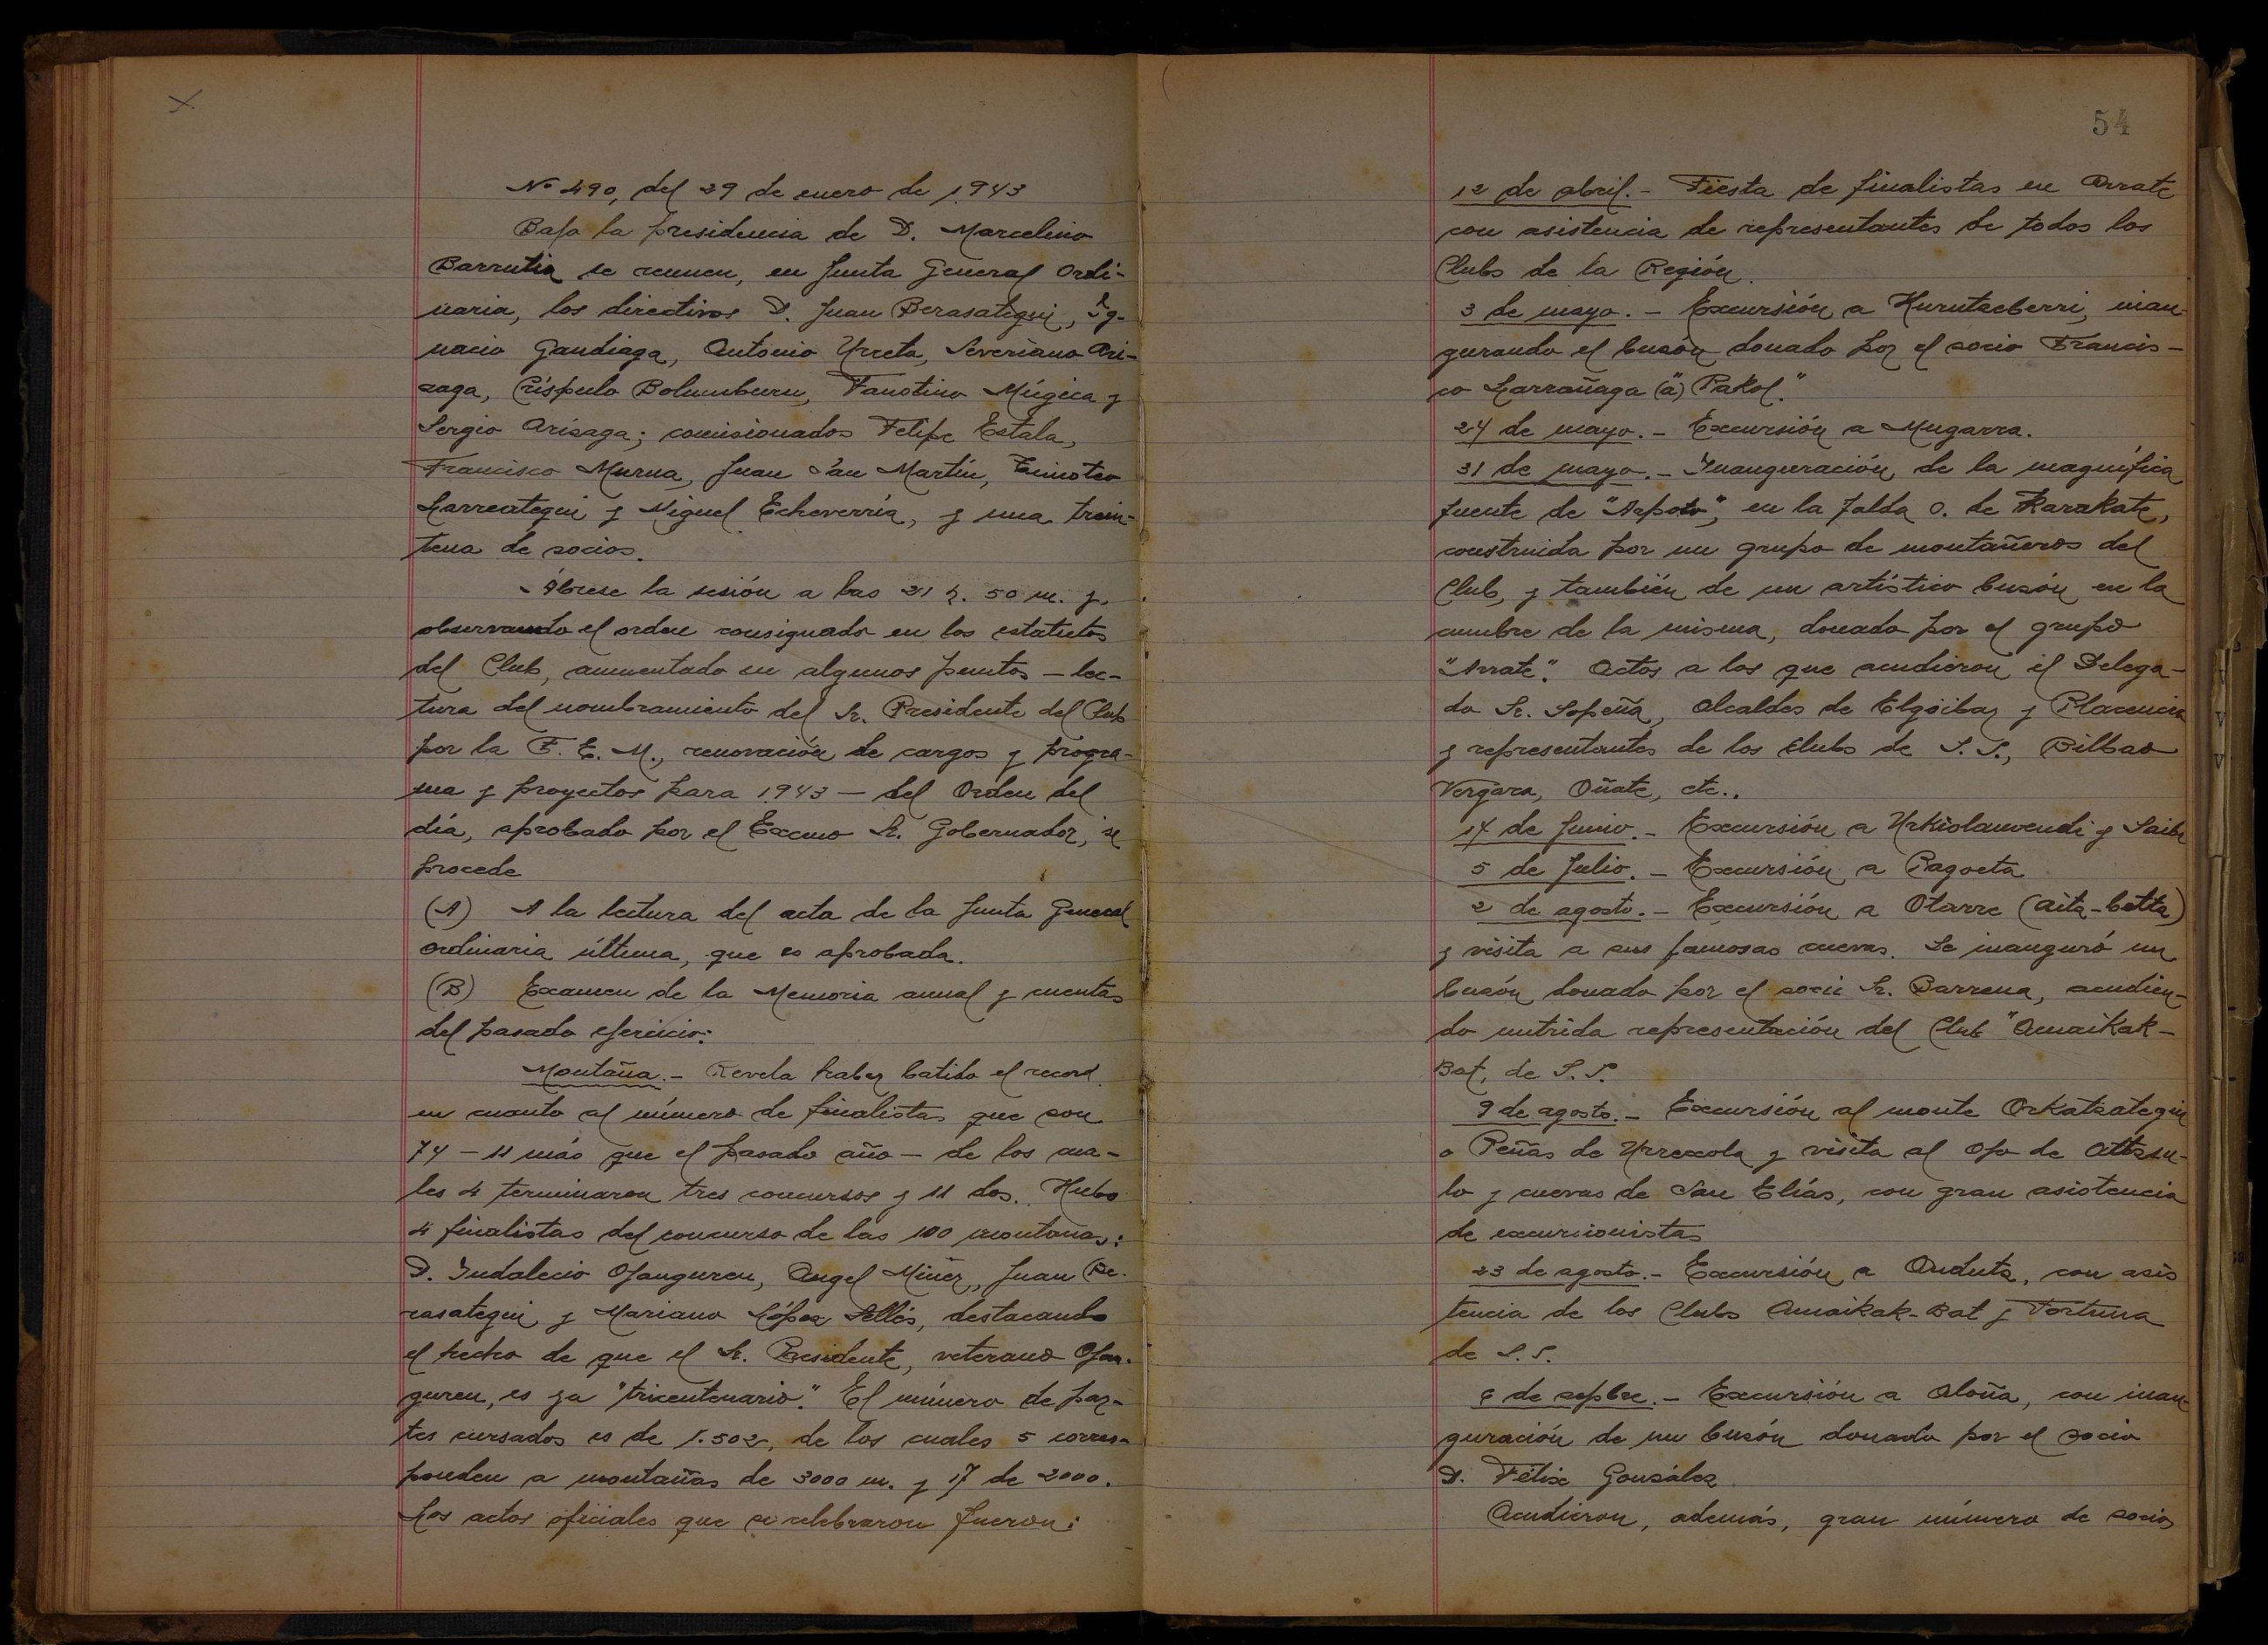 Nº 490, del 29 de enero de 1943
Bajo la presidencia de D. Marcelino
Barrutia se reunen, en Junta General Ordi-
naria, los directivos D. Juan Berasategui, Ig-
nacio Gandiaga, Antonio Urreta, Severiano Ari-
zaga, Críspulo Bolumburu, Faustino Múgica y
Sergio Arizaga; comisionados Felipe Estala,
Francisco Murua, Juan San Martín, Timoteo
Larreategui y Miguel Echeverría, y una trein-
tena de socios.
- Ábrese la sesión a las 21 h. 50 m. y,
observando el orden consignado en los estatutos
del Club, aumentado en algunos puntos - lec-
tura del nombramiento del Sr. Presidente del Club
por la F. E. M., renovación de cargos y progra-
ma y proyectos para 1943 - del Orden del
día, aprobado por el Excmo Sr. Gobernador, se
procede
(A) A la lectura del acta de la Junta General
ordinaria última, que es aprobada.
(B) Examen de la Memoria anual y cuentas
del pasado ejercicio:
Montaña.- Revela haber batido el record
en cuanto al número de finalistas que son
74 - 11 más que el pasado año - de los cua-
les 4 terminaron tres concursos y 11 dos. Hubo
4 finalistas del concurso de las 100 montañas:
D. Indalecio Ojanguren, Angel Miñer, Juan Be-
rasategui y Mariano López Sellés, destacando
el hecho de que el Sr. Presidente, veterano Ojan-
guren, es ya "tricentenario". El número de par-
tes cursados es de 1.502, de los cuales 5 corres-
ponden a montañas de 3000 m. y 17 de 2000.
Los actos oficiales que se celebraron fueron:
54
12 de abril.- Fiesta de finalistas en Arrate
con asistencia de representantes de todos los
Clubs de la Región.
3 de mayo.- Excursión a Kurutzeberri, inau-
gurando el buzón donado por el socio Francis-
co Larrañaga (a) "Pakol".
24 de mayo.- Excursión a Mugarra.
31 de mayo.- Inauguración de la magnífica
fuente de "Azpoto", en la falda O. de Karakate,
construida por un grupo de montañeros del
Club, y también de un artístico buzón en la
cumbre de la misma, donado por el grupo
"Arrate". Actos a los que acudieron el Delega-
do Sr. Sopeña, Alcaldes de Elgóibar y Placencia
y representantes de los clubs de S. S., Bilbao
Vergara, Oñate, etc..
17 de Junio.- Excursión a Urkiolamendi y Saibi
5 de Julio.- Excursión a Pagoeta
2 de agosto.- Excursión a Otarre (Aitz-beltz)
y visita a sus famosas cuevas. Se inauguró un
buzón donado por el socio Sr. Barrena, acudien-
do nutrida representación del Club "Amaikak-
Bat, de S. S.
9 de agosto.- Excursión al monte Orkatzategui
o Peñas de Urrexola y visita al Ojo de Aitzsu-
lo y cuevas de San Elías, con gran asistencia
de excursionistas
23 de agosto.- Excursión a Andutz, con asis
tencia de los Clubs Amaikak-Bat y Fortuna
de S. S.
6 de sepbre.- Excursión a Aloña, con inau-
guración de un buzón donado por el socio
D. Félix González
Acudieron, además, gran número de socios